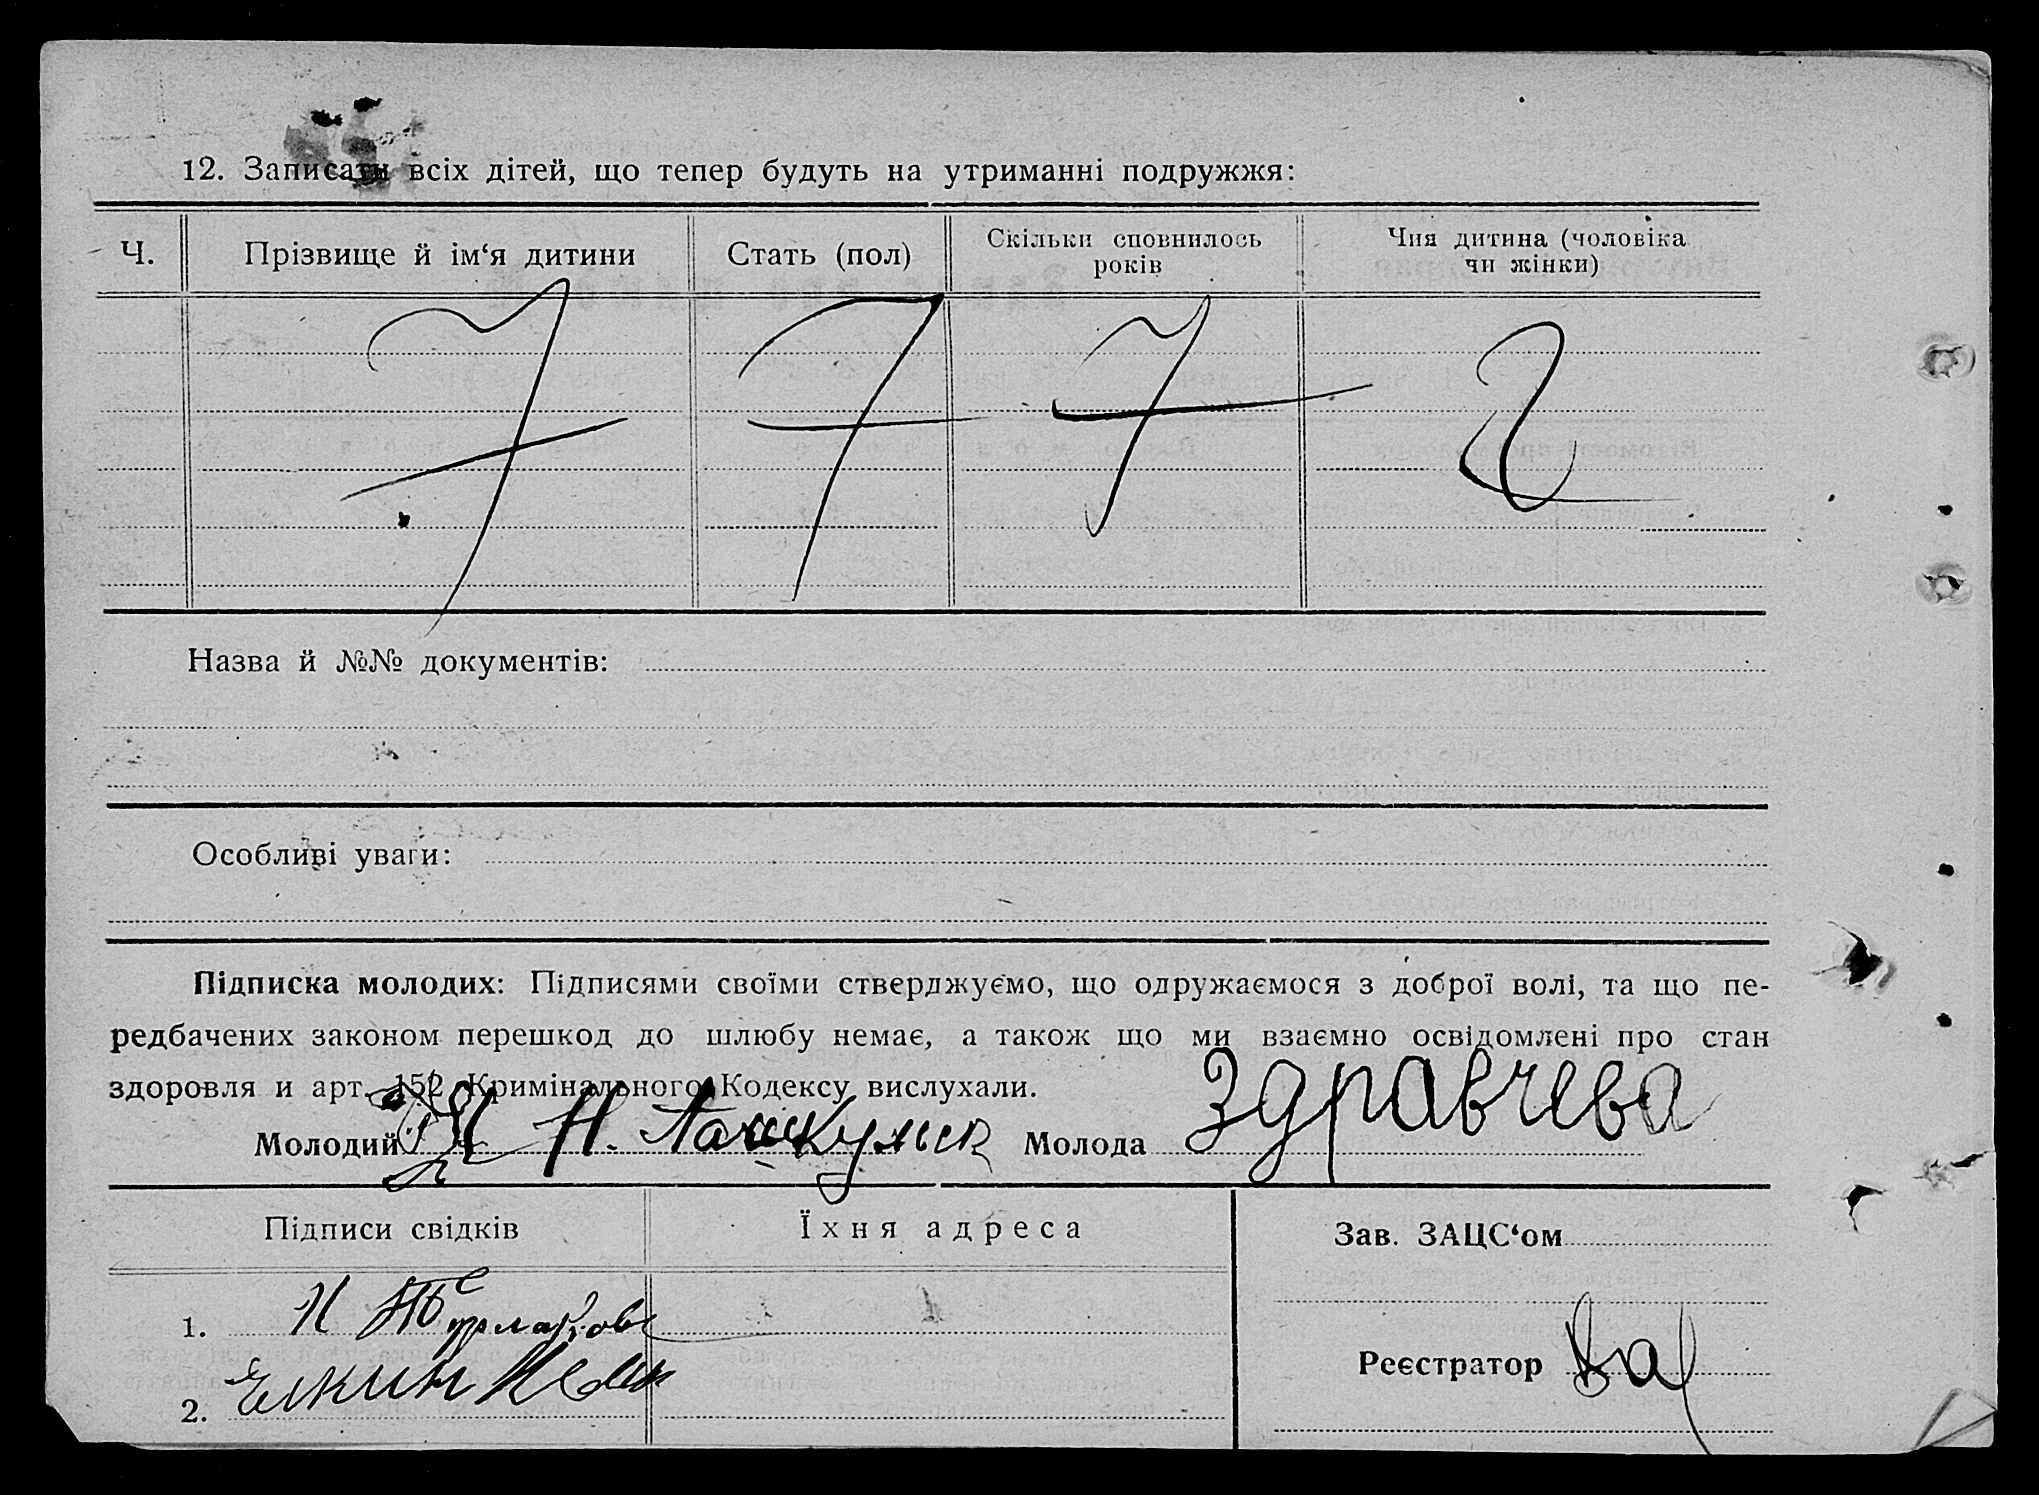 12. Записати всіх дітей, що тепер будуть на утриманні подружжя:
Ч.
Прізвище й ім‘я дитини
Стать (пол)
Скільки сповнилось
років
Чия дитина (чоловіка
чи жінки)
Назва й №№ документів:
Особливі уваги:
Підписка молодих: Підписями своїми стверджуємо, що одружаємося з доброї волі, та що пе-
редбачених законом перешкод до шлюбу немає, а також що ми взаємно освідомлені про стан
здоровля и арт. 152 Кримінального Кодексу вислухали.
Молодий Н. Молода Здравчева
Підписи свідків
Їхня адреса
Зав. ЗАЦС‘ом
1.
Реєстратор
2. Елкин